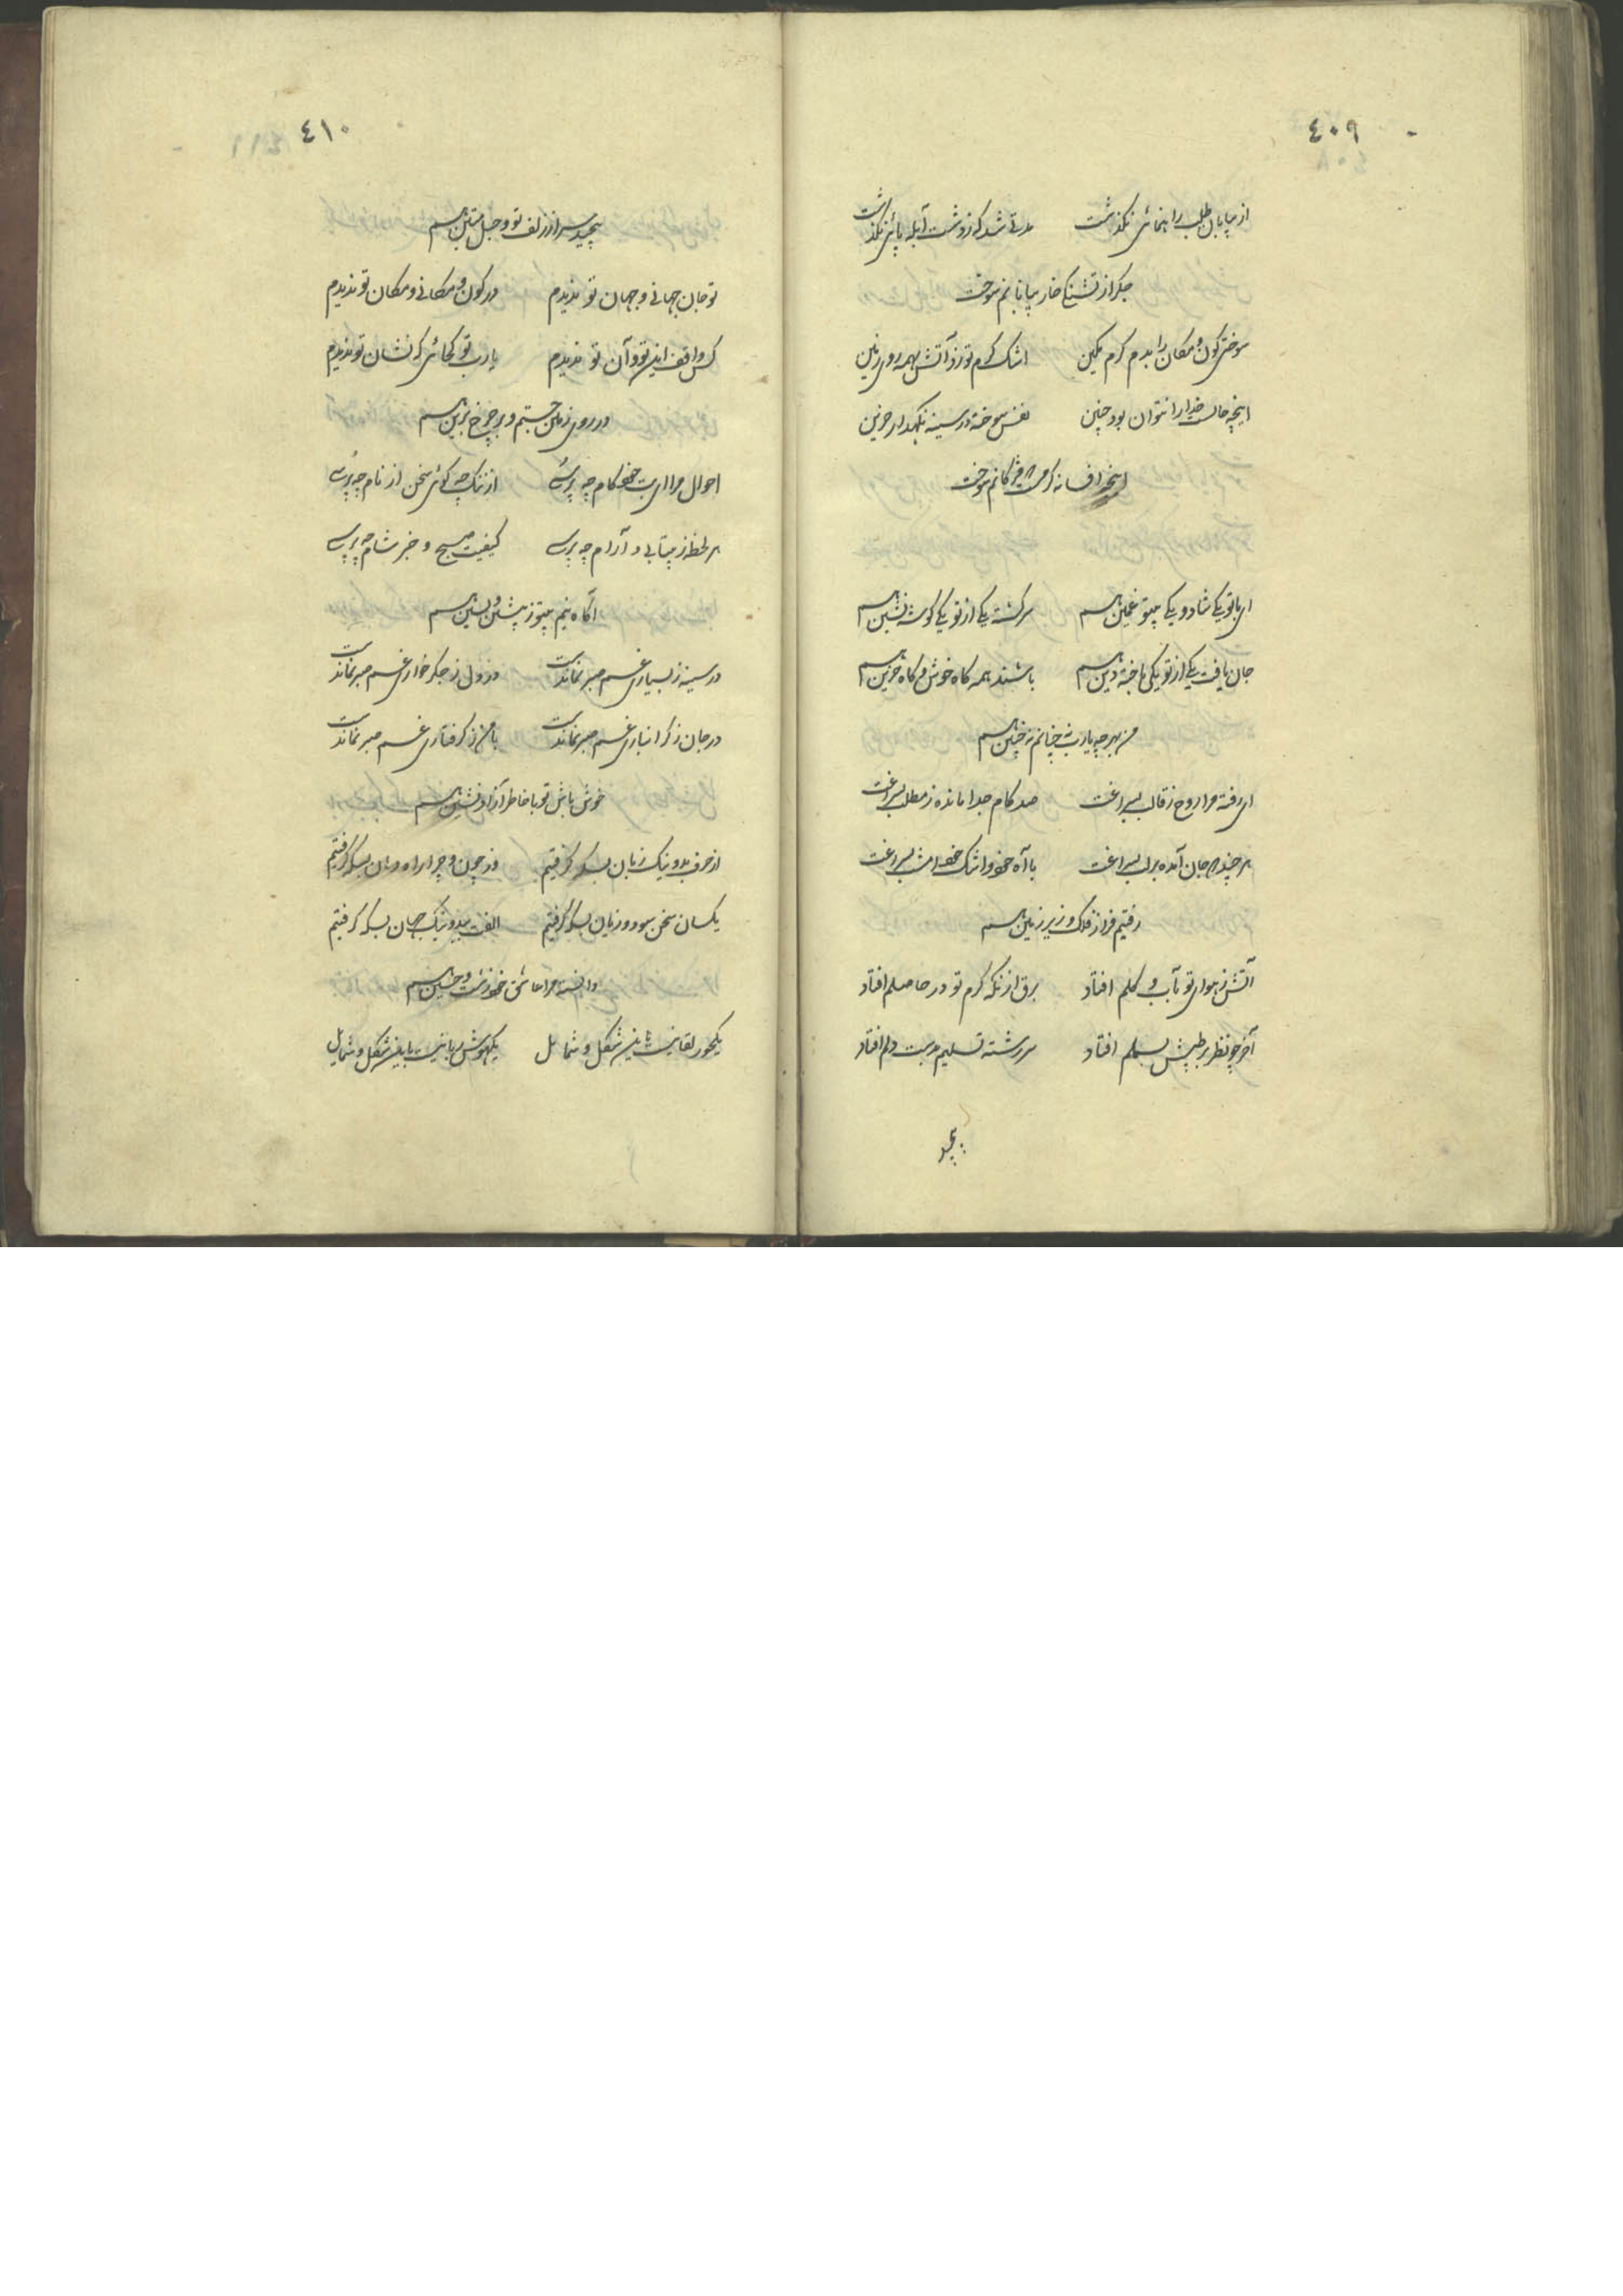 ٤٠٩
از بیابان طلب راهنمائی نگذشت مدتی شد که ز دشت آبله پائی نگذشت
جگر از تشنگی خار بیابانم سوخت
سوختی کون و مکان را بدم گرم مکین اشک گرم تو زد آتش بهمه روی زمین
اینچه حالست خدا را نتوان بود چنین نفس سوخته در سینه نگهدار حزین
اینجه افسانه گرمت مژگانم سوخت
ای با تو یکی شاد و یکی بیتو غمین هم سرگشته یکی از تو یکی گوشه نشین هم
جان یافت یکی از تو یکی باخته دین هم باشند همه گاه خوش و گاه حزین هم
من بهر چه یارب نه چنانم نه چنین هم
ای رفته مرا روح ز قالب بسراغت صد کام جدا مانده ز مطلب بسراغت
هر چند جان آمده بر لب بسراغت با آه خود و اشک خود امشب بسراغت
رفتیم فراز فلک و زیر زمین هم
آتش ز هوای تو بآب و گلم افتاد برق از نگه گرم تو در حاصلم افتاد
آخر چو نظر بر طپش بسملم افتاد سررشته تسلیم بدست دلم افتاد
پیچد
٤١٠
پیچید سر از زلف تو و حبل متین هم
تو جان جهانی و جهان تو ندیدم در کون و مکانی و مکان تو ندیدم
کس واقف این تو و آن تو ندیدم یارب تو کجائی که نشان تو ندیدم
در روی زمین جستم و بر چرخ برین هم
احوال مرا ای بت خودکام چه پرسی از ننگ چه گوئی سخن از نام چه پرسی
هر لحظه ز بیتابی و آرام چه پرسی کیفیت صبح و خبر شام چه پرسی
آگاه نیم بیتو ز پیشین و پسین هم
در سینه ز بسیاری غم صبر نماندست در دل ز جگر خواری غم صبر نماندست
در جان ز گرانباری غم صبر نماندست با من ز گرفتاری غم صبر نماندست
خوش باش تو با خاطر آزاد نشین هم
از حرف بد و نیک زبان بسکه گرفتیم وز چون و چرا راه دهان بسکه گرفتیم
یکسان سخن سود و زیان بسکه گرفتیم الفت ببد و نیک جهان بسکه گرفتیم
دانسته مرا عاشق خود زشت و حسین هم
یکحور لقا نیست باین شکل و شمایل یکهوش ربا نیست باین شکل و شمایل